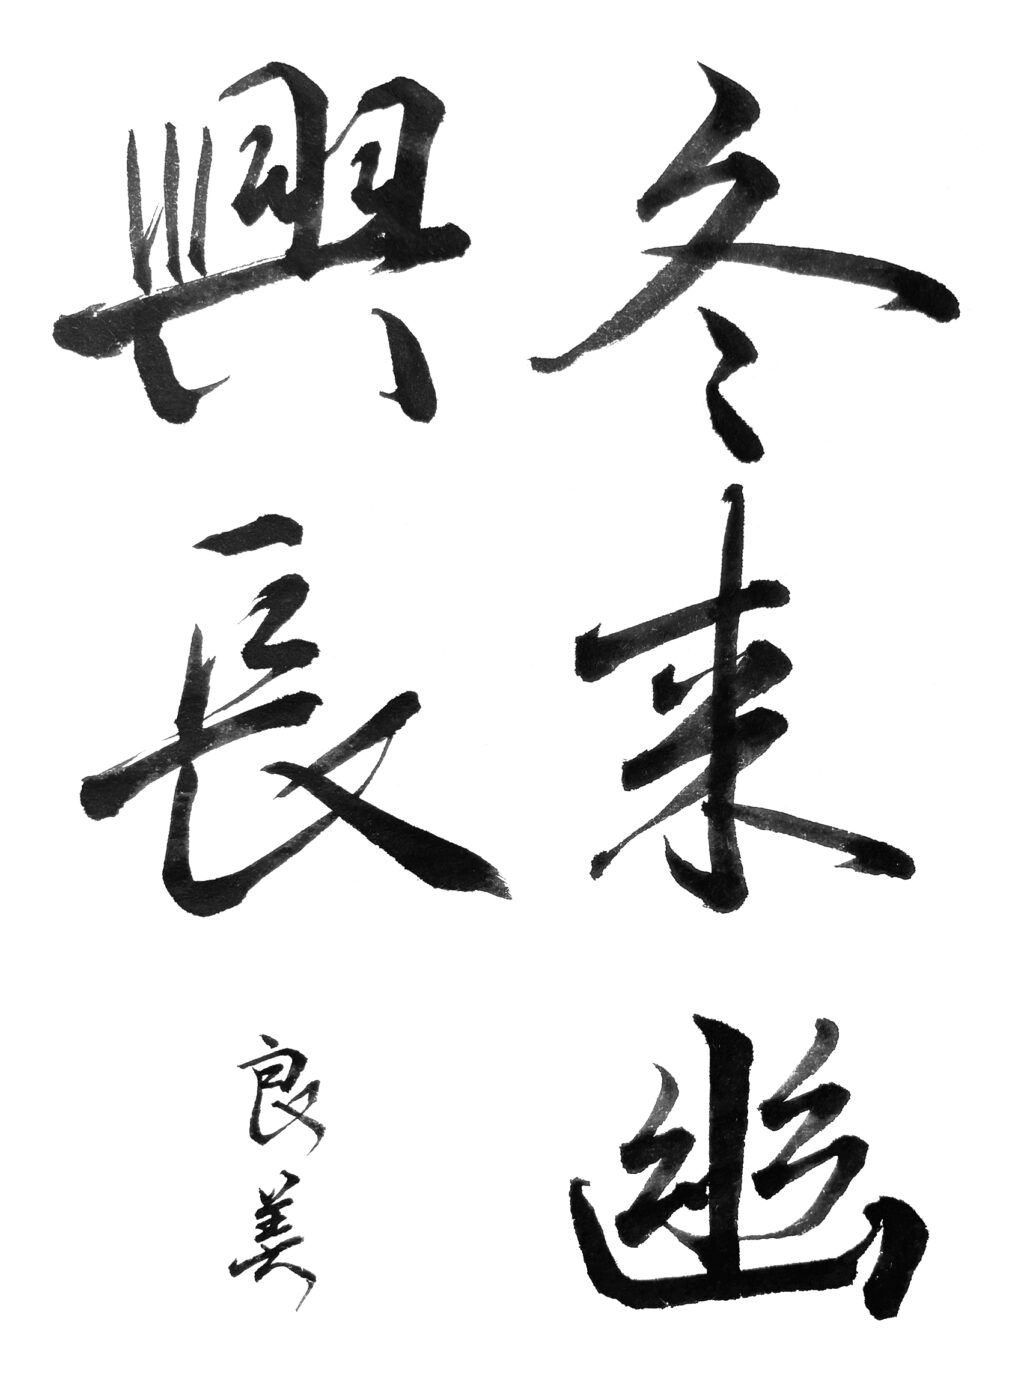 冬来幽
興長
良美